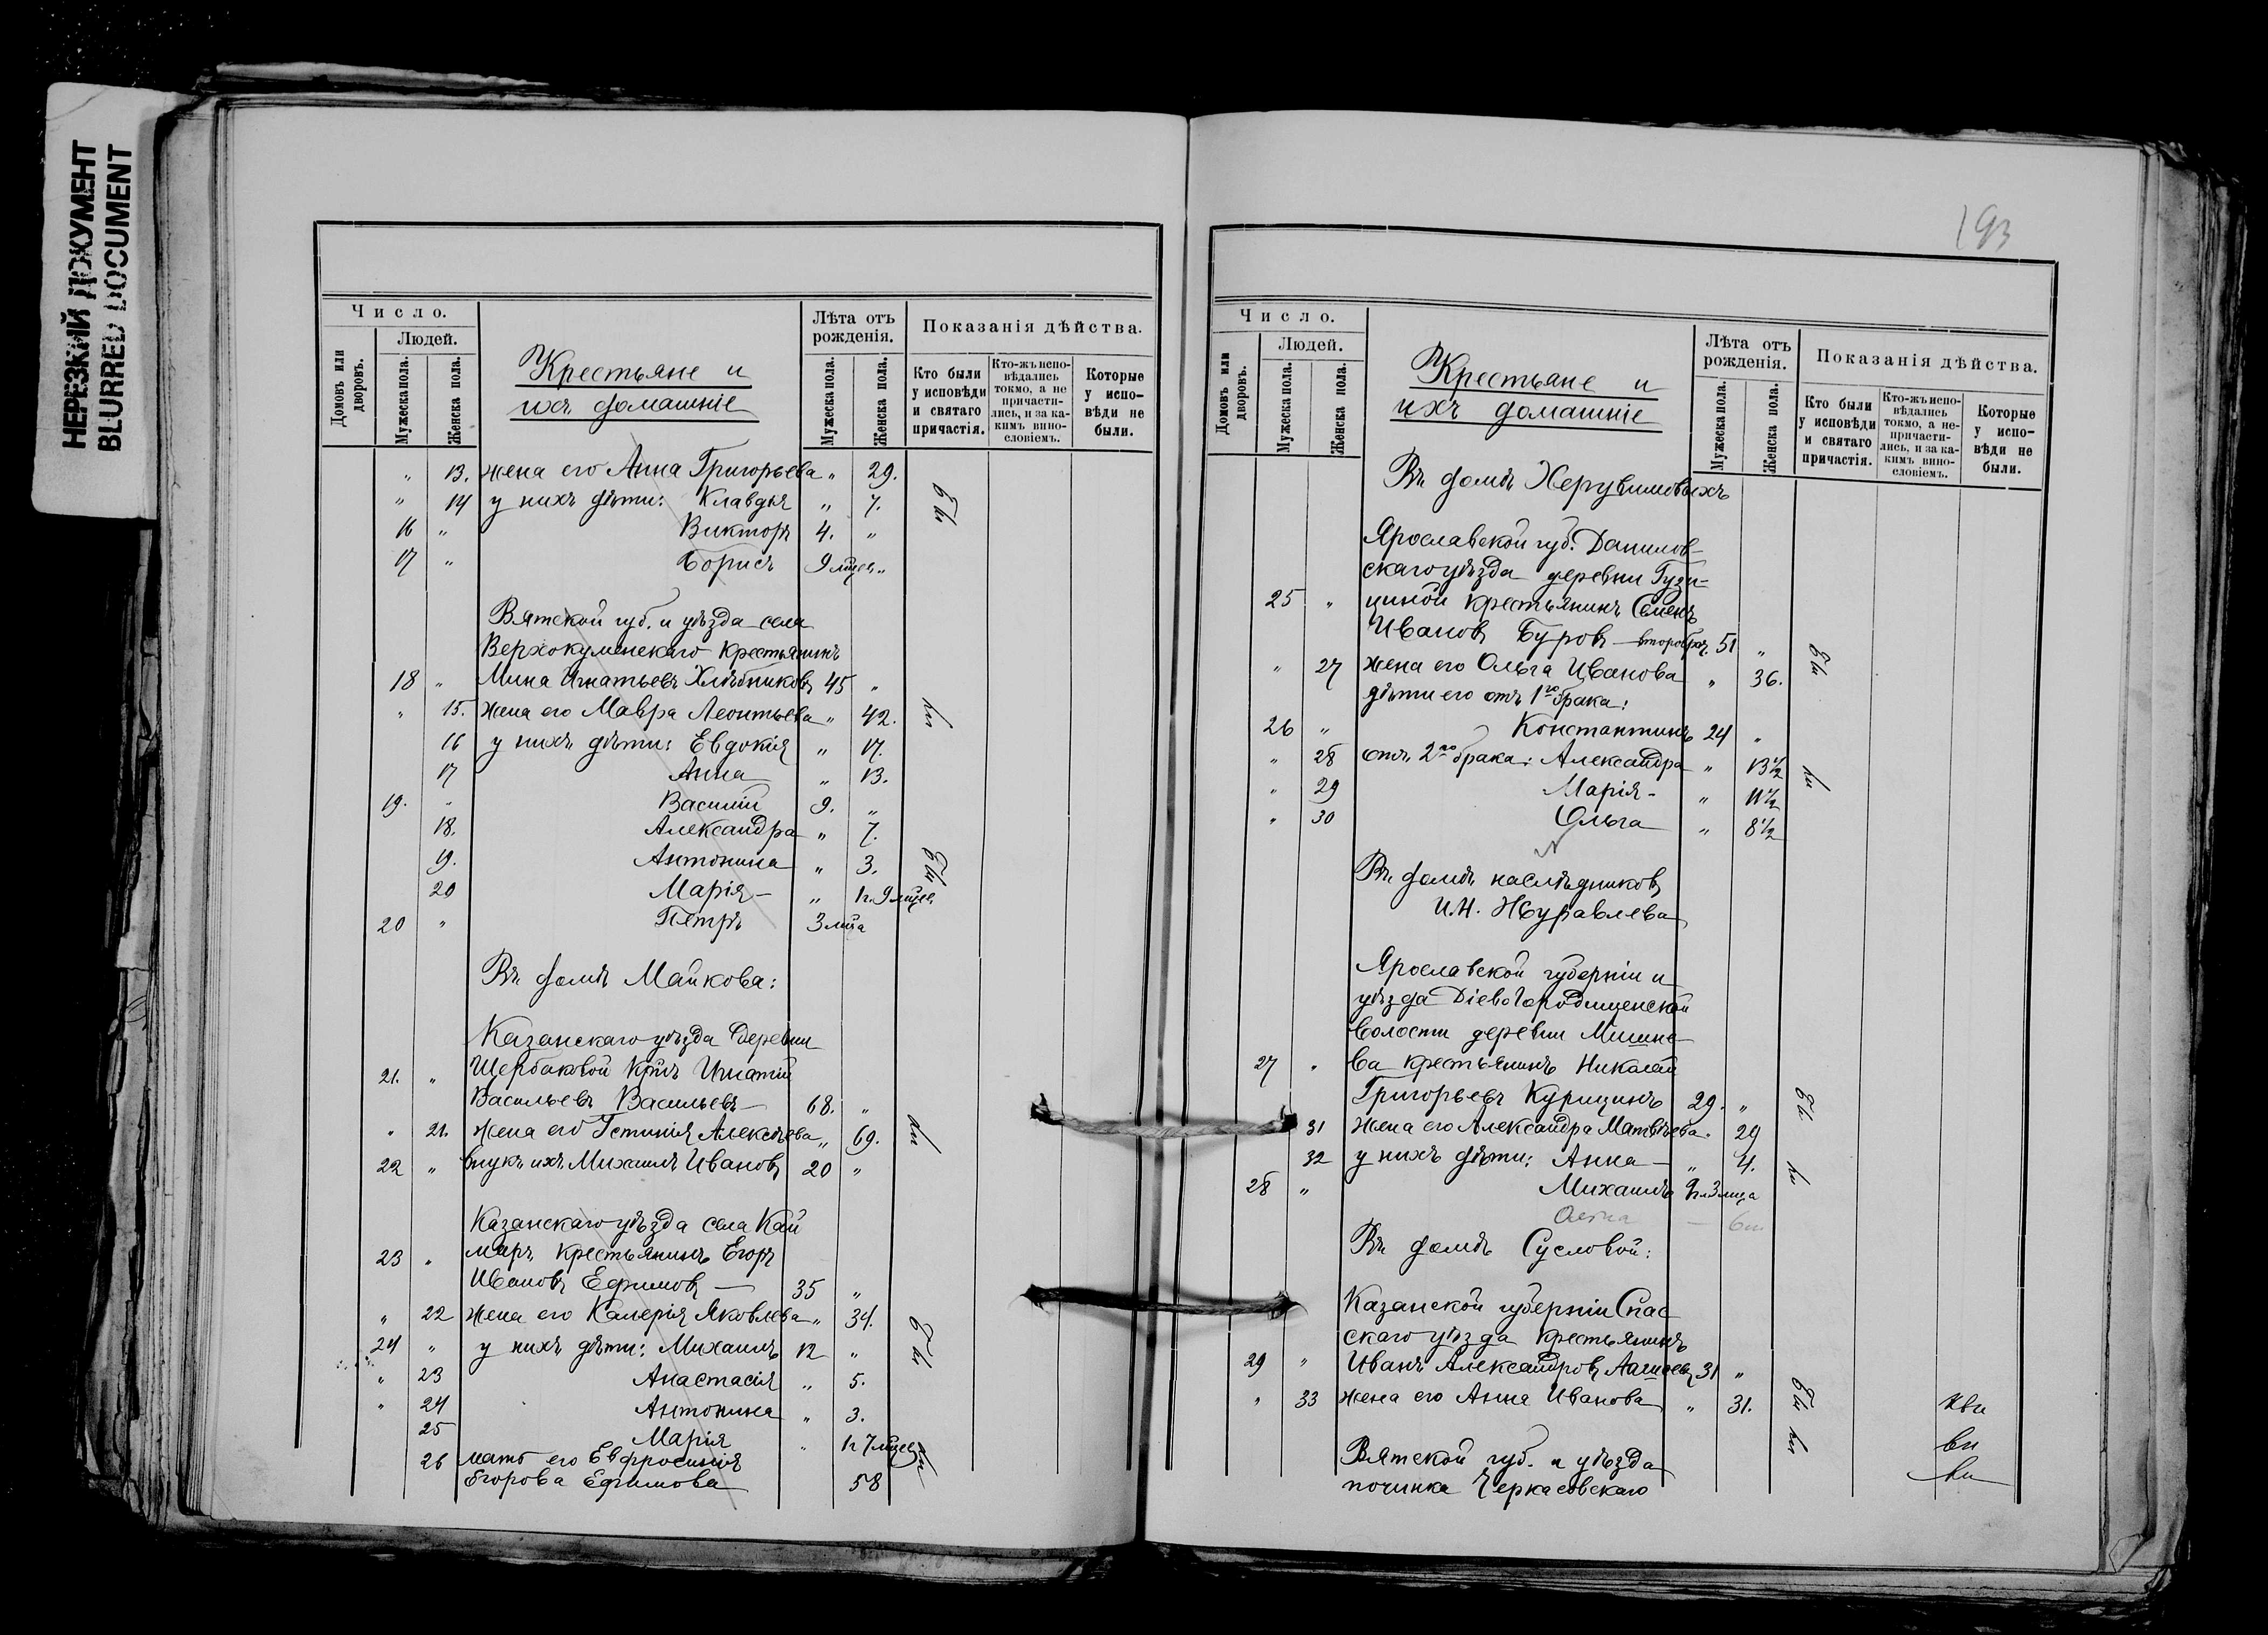 НЕРЕЗКИЙ ДОКУМЕНТ
BLURRED DOCUMENT
Число.
Людей.
Домовъ или дворовъ.
Мужеска пола.
Женска пола.
Крестьяне и
ихъ домашніе
Лѣта отъ рожденія.
Мужеска пола.
Женска пола.
Показанія дѣйства.
Кто были у исповѣди и святаго причастія.
Кто-жъ исповѣдались токмо, а не причастились, и за какимъ винословіемъ.
Которые у исповѣди не были.
" 13. жена его Анна Григорьева " 29.
" 14 у нихъ дѣти: Клавдія " 7.
16 " Викторъ 4. "
17 " Борисъ 9 мцев. "
Вятской губ. и уѣзда села
Верхокуменскаго крестьянинъ
18 " Мина Игнатьевъ Хлѣбниковъ 45 "
" 15. жена его Мавра Леонтьева " 42.
16 у нихъ дѣти: Евдокія " 17.
17 Анна " 13.
19. " Василій 9. "
18. Александра " 7.
19. Антонина " 3.
20 Марія - " 1 г. 9 мцев.
20 " Петръ 3 мца
Въ домѣ Майкова:
Казанскаго уѣзда деревни
21. " Щербаковой кр-нъ Игнатій
Васильевъ Васильевъ — 68. "
" 21. жена его Устинія Алексѣева " 69.
22 " внукъ ихъ Михаилъ Ивановъ 20 "
Казанскаго уѣзда села Кай
23 " маръ крестьянинъ Егоръ
Ивановъ Ефимовъ — 35 "
" 22 жена его Калерія Яковлева " 34.
24 " у нихъ дѣти: Михаилъ 12 "
" 23 Анастасія " 5.
" 24 Антонина " 3.
25 Марія " 1 г 7 мцев
26 мать его Евфросинія
Егорова Ефимова 58
193
Число.
Людей.
Домовъ или дворовъ.
Мужеска пола.
Женска пола.
Крестьяне и
ихъ домашніе
Лѣта отъ рожденія.
Мужеска пола.
Женска пола.
Показанія дѣйства.
Кто были у исповѣди и святаго причастія.
Кто-жъ исповѣдались токмо, а не причастились, и за какимъ винословіемъ.
Которые у исповѣди не были.
Въ домѣ Херувимовыхъ
Ярославской губ. Данилов-
скаго уѣзда деревни Гузи-
25 " циной крестьянинъ Семенъ
Ивановъ Буровъ — второбрач. 51 "
" 27 жена его Ольга Иванова " 36.
дѣти его отъ 1го брака:
26 " Константинъ 24 "
" 28 отъ 2го брака: Александра " 13 1/2
" 29 Марія - " 11 1/2
" 30 Ольга " 8 1/2
Въ домѣ наслѣдниковъ
И.Н. Журавлева
Ярославской губерніи и
уѣзда Діевогородищенской
волости деревни Мишине-
27 " ва крестьянинъ Николай
Григорьевъ Курицинъ 29. "
31 жена его Александра Матвѣева. 29
32 у нихъ дѣти: Анна — " 4.
28 " Михаилъ 3 мца
Въ домѣ Сусловой:
Казанской губерніи Спас
скаго уѣзда крестьянинъ
29 " Иванъ Александровъ 31 "
" 33 жена его Анна Иванова " 31.
Вятской губ. и уѣзда
починка Черкасовскаго